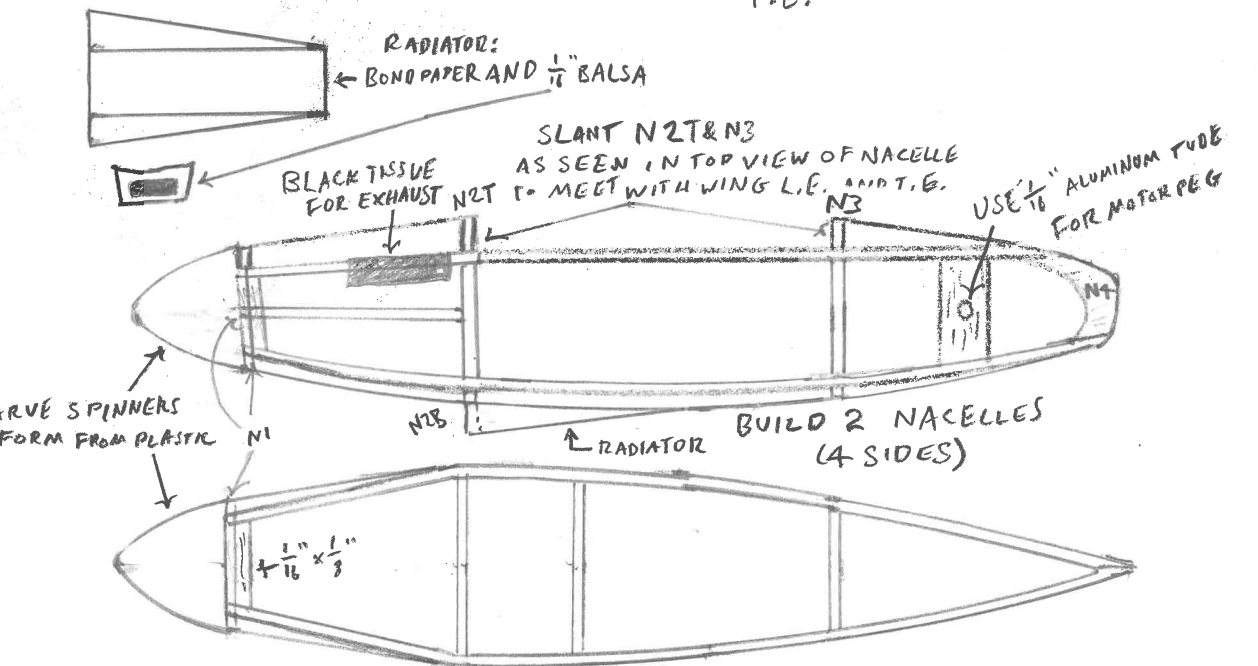 T.E.
RADIATOR:
BOND PAPER AND 1/16" BALSA
SLANT N2T&N3
AS SEEN IN TOP VIEW OF NACELLE
TO MEET WITH WING L.E. AND T.E.
BLACK TISSUE
FOR EXHAUST
N2T
N3
USE 1/16" ALUMINUM TUBE
FOR MOTOR PEG
N4
ARVE SPINNERS
FORM FROM PLASTIC
N1
N2B
RADIATOR
BUILD 2 NACELLES
(4 SIDES)
1/16" x 1/8"